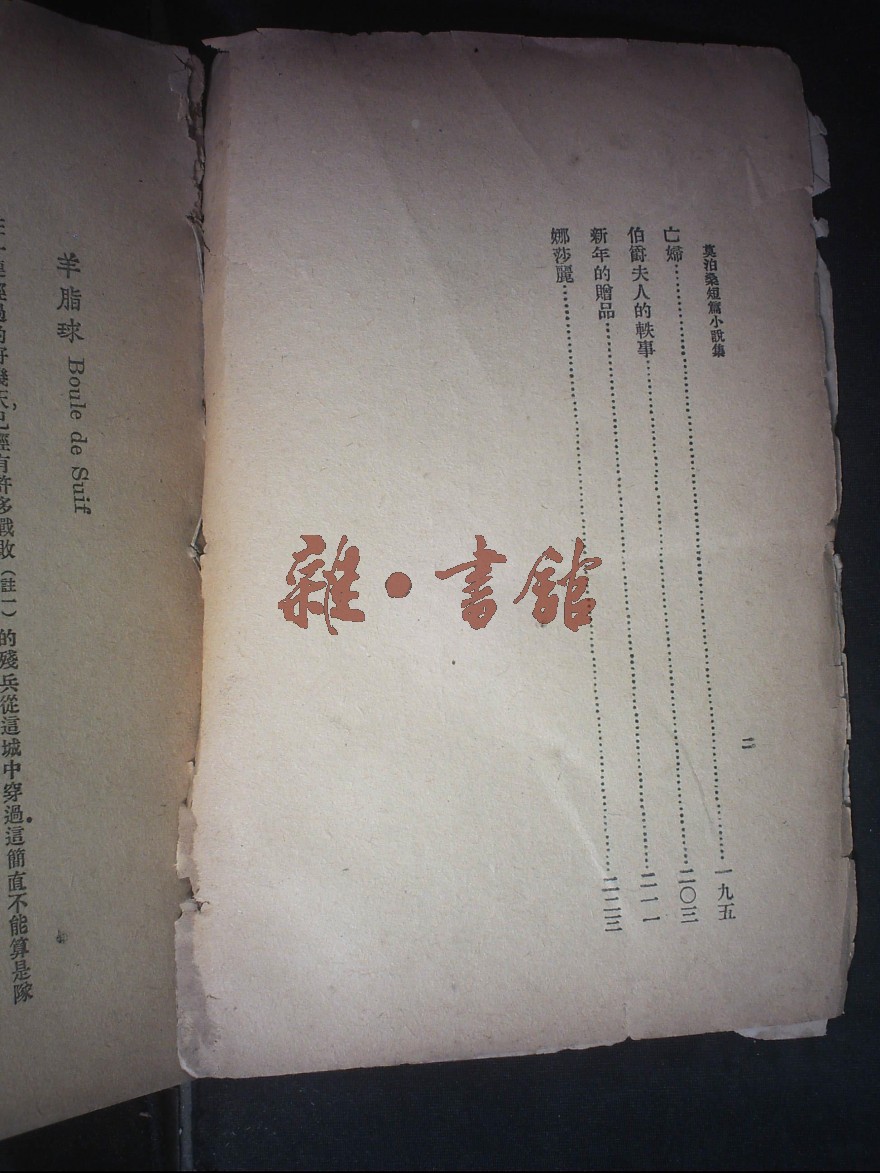 莫泊桑短篇小說集
二
亡婦……一九五
伯爵夫人的軼事……二〇三
新年的贈品……二一一
娜莎麗……二二三
羊脂球 Boule de Suif
經過的好幾天,已經有許多戰敗(註一)的殘兵從這城中穿過。這簡直不能算是隊
雜·書館